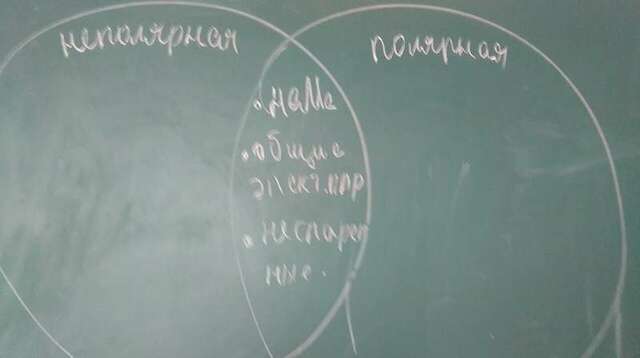 неполярная
полярная
• наМе
• общие
электр.пар
• неспарен
ные.